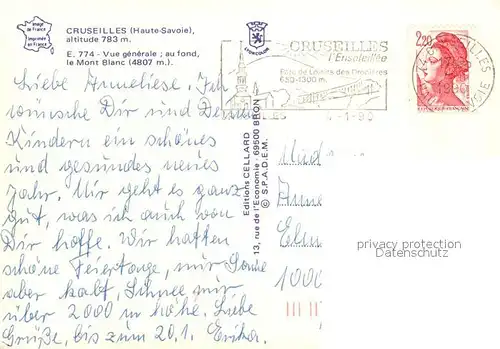 Image
de France
Imprimée
en France
CRUSEILLES (Haute-Savoie),
altitude 783 m.
E. 774 - Vue générale ; au fond,
le Mont Blanc (4807 m.).
LYONCOLOR
CRUSEILLES
l'Ensoleillée
Parc de Loisirs des Dronières
650-1300 m.
4-1-90
2,20
CRUSEILLES
Liebe Anneliese. Ich
wünsche Dir und Deinen
Kindern ein schönes
und gesundes neues
Jahr. Mir geht es ganz
gut, was ich auch von
Dir hoffe. Wir hatten
schöne Feiertage, mir Sonne
aber kalt, Schnee nur
über 2000 m höhe. Liebe
Grüße, bis zum 20.1. Erika.
Editions CELLARD
13, rue de l'Economie - 69500 BRON
© S.P.A.D.E.M.
1000
privacy protection
Datenschutz